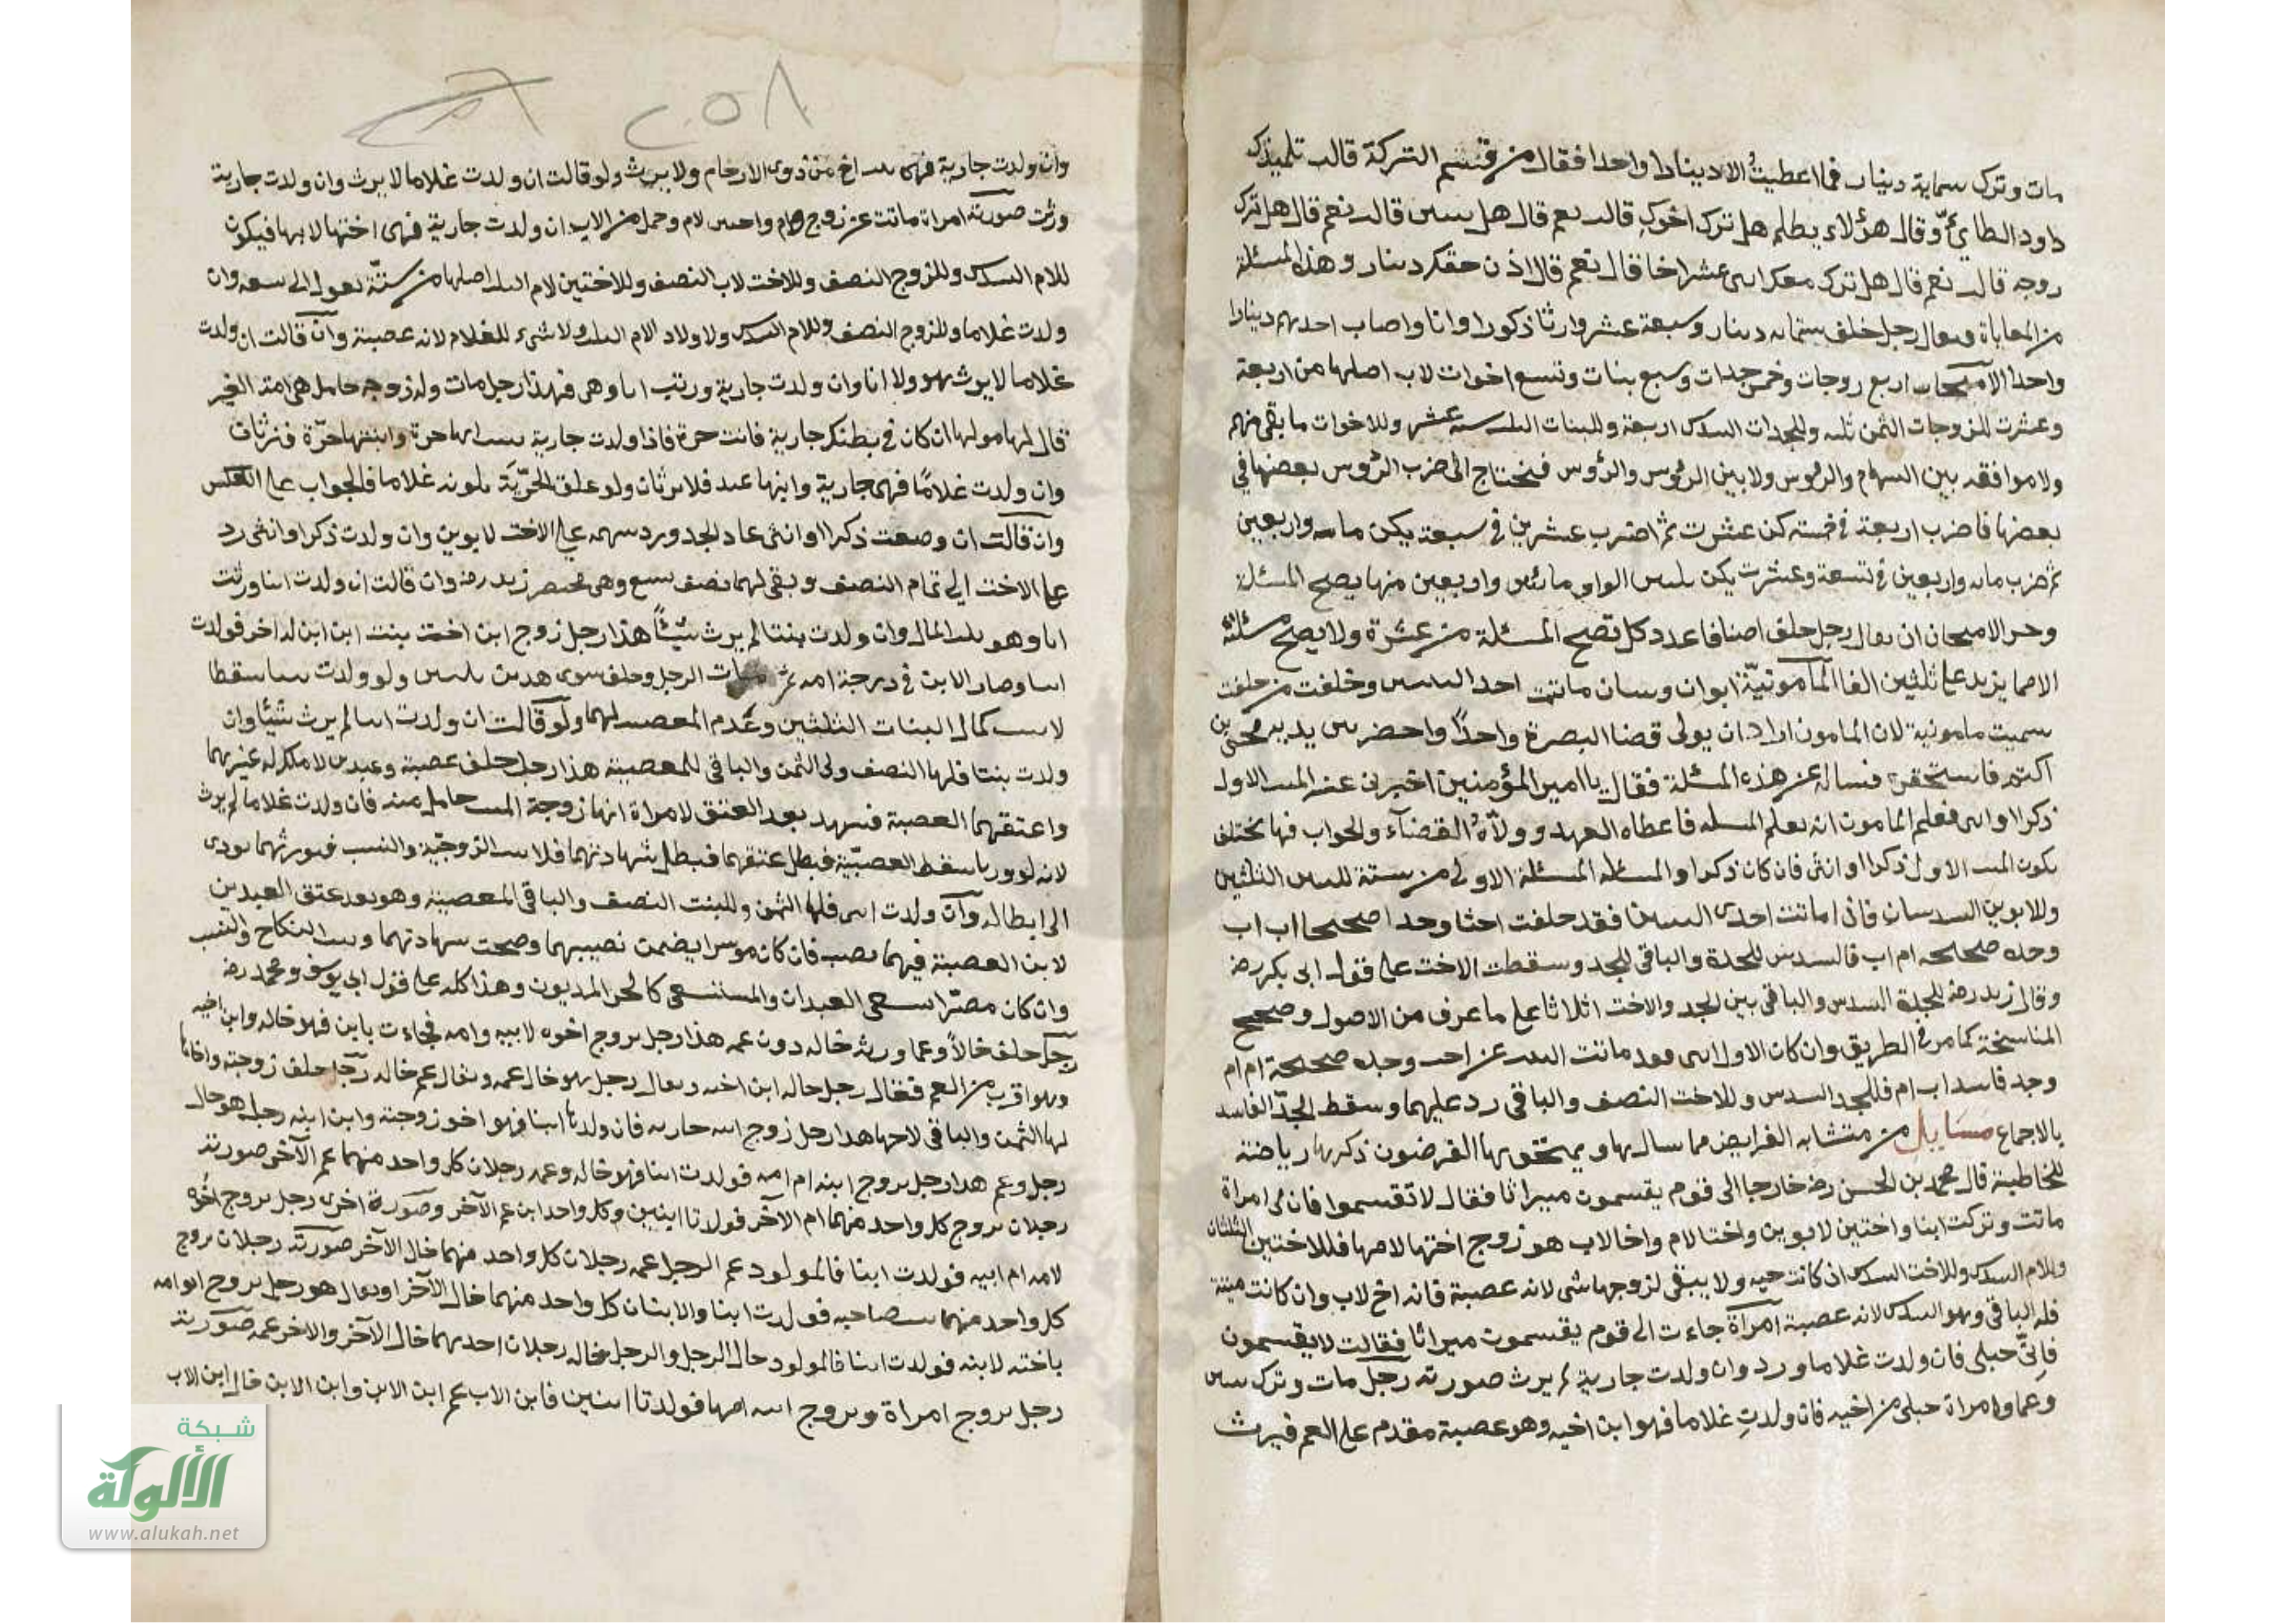 مات وترك ستماية دينار فما اعطيتُ الا دينارا واحدا فقال من قسم التركة قالت تلميذك
داود الطائي وقال هؤلاء يظلم هل ترك اخوك قالت نعم قال هل بنتين قالت نعم قال هل ترك
زوجة قالت نعم قال هل ترك معك اثنى عشر اخا قال نعم قال اذن حقك دينار وهذه المسئلة
من المعاياة فيقال رجل خلف ستمائة دينار وسبعة عشر وارثا ذكورا واناثا واصاب احدهم دينارا
واحدا الامتحان اربع زوجات وخمس جدات وسبع بنات وتسع اخوات لاب اصلها من اربعة
وعشرين للزوجات الثمن ثلثه وللجدات السدس اربعة وللبنات الثلثين ستة عشر وللاخوات ما بقى منهم
ولا موافقة بين السهام والرؤس ولا بين الرؤس والرؤس فنحتاج الى ضرب الرؤس بعضها في
بعضها فاضرب اربعة في خمسة يكن عشرين ثم اضرب عشرين في سبعة يكن مائة واربعين
ثم ضرب مائة واربعين في تسعة وعشرين يكن ثلثين الفا ومائتين واربعين منها يصح المسئلة
وحد الامتحان ان يقال رجل خلف اصنافا عدد كل تصح المسئلة من عشرة ولا يصح مسئلته
الا مما يزيد على ثلثين الفا المأمونيّة ابوان وبنتان ماتت احد البنتين وخلفت من خلفت
سميت مامونية لان المامون اراد ان يولى قضا البصرة واحدًا واحضر بين يديه يحيى بن
اكثم فاستحقره فساله عن هذه المسئلة فقال يا امير المؤمنين اخبرنى عن الميت الاول
ذكرا او انثى فعلم المامون انه يعلم المسئلة فاعطاه العهد وولّاه القضاء والجواب فيها يختلف
بكون الميت الاول ذكرا او انثى فان كان ذكرا والمسئلة المسئلة الاولى من ستة للبنتين الثلثين
وللابوين السدسان فاذا ماتت احدى البنتين فقد خلفت اختا وجدا صحيحا اب اب
وجدة صحيحة ام اب فالسدس للجدة والباقى للجد وسقطت الاخت على قول ابى بكر رضه
وقال زيد رضه للجدة السدس والباقى بين الجد والاخت اثلاثا على ما عرف من الاصول وصحيح
المناسخة كما مر في الطريق وان كان الاول انثى فقد ماتت البنت عن اخت وجدة صحيحة ام ام
وجد فاسد اب ام فللجدة السدس وللاخت النصف والباقى رد عليهما وسقط الجدّ الفاسد
بالاجماع مسَايل من متشابه الفرايض مما سال بها ويمتحن بها الفرضيون ذكرها رياضة
للخاطبة قال محمد بن الحسن رضه خارجا الى قوم يقسمون ميراثا فقال لا تقسموا فان لى امراة
ماتت وتركت ابنا واختين لابوين واختا لام واخا لاب هو زوج اختها لامها فللاختين الثلثان
وللام السدس وللاخت السدس ان كانت حيه ولا يبقى لزوجها شى لانه عصبة فانه اخ لاب وان كانت ميتة
فله الباقى وهو السدس لانه عصبة امرأة جاءت الى قوم يقسمون ميراثا فقالت لا يقسمون
فانّى حبلى فان ولدت غلاما ورد وان ولدت جارية لم يرث صورته رجل مات وترك بنتين
وعما وامراة حبلى من اخيه فان ولدتِ غلاما فهو ابن اخيه وهو عصبة مقدم على العم فيرث
٢٥٨
وان ولدت جارية فهى بنت اخ من ذوى الارحام ولا يرث ولو قالت ان ولدت غلاما لا يرث وان ولدت جارية
ورثت صورته امراة ماتت عن زوج وام واختين لام وحمل من الاب ان ولدت جارية فهى اختها لابيها فيكون
للام السدس وللزوج النصف وللاخت لاب النصف وللاختين لام الثلث اصلها من ستّة تعول الى تسعة وان
ولدت غلاما وللزوج النصف وللام السدس ولاولاد الام الثلث ولا شىء للغلام لانه عصبة وان قالت ان ولدت
غلاما لا يرث هو ولا انا وان ولدت جارية ورثت انا وهى فهذا رجل مات وله زوجة حامل هى امة الغير
قال لها مولاها ان كان في بطنك جارية فانت حرة فاذا ولدت جارية حرة وابنتها حرّة فترثان
وان ولدت غلامًا فهى جارية وابنها عبد فلا يرثان ولو علق الحرّيَة بكونه غلاما فالجواب على العكس
وان قالت ان وضعت ذكرا او انثى عاد الجد ورد سهمه على الاخت لابوين وان ولدت ذكرا وانثى رد
على الاخت الى تمام النصف وبقى لهما نصف تسع وهى مختصر زيد رضه وان قالت ان ولدت ابنا ورثت
انا وهو ثلث المال وان ولدت بنتا لم يرث شيئًا هذا رجل زوج ابن اخت بنت ابن ابن له اخر فولدت
ابنا وصار الابن في درجة امه ثم مات الرجل وخلف سوى هذين بنتين ولو ولدت بنتا سقطا
لاستكمال البنات الثلثين وعدم المعصب لهما ولو قالت ان ولدت ابنا لم يرث شيئًا وان
ولدت بنتا فلها النصف ولى الثمن والباقى للعصبة هذا رجل خلف عصبة وعبدين لا ملك له غيرهما
واعتقهما العصبة فشهد بعد العتق لامراة انها زوجة الميت حامل منه فان ولدت غلاما لم يرث
لانه لو ورث اسقط العصبيّة فبطل عتقهما فبطل شهادتهما فلا يثبت الزوجيّة والنسب فتوريثهما يودى
الى ابطاله وان ولدت انثى فلها الثمن وللبنت النصف والباقى للعصبة وهو بعد عتق العبدين
لابن العصبة فيهما نصيب فان كان موسرا يضمن نصيبهما وصحت شهادتهما وثبت النكاح والنسب
وان كان معسرّا استسعى العبدان والمستسعى كالحر المديون وهذا كله على قول ابى يوسف ومحمد رضه
رجل خلف خالًا وعما ورثه خاله دون عمه هذا رجل تزوج اخوه لابيه وامه فجاءت بابن فهو خاله وابن اخيه
وهو اقرب من العم فقال رجل خاله ابن اخته ويقال رجل هو خال عمه ويقال عم خاله رجل خلف زوجته واخاها
لها الثمن والباقى لاخيها هذا رجل زوج ابنه فان ولدتا ابنا فهو اخو زوجته وابن ابنه رجل هو خال
رجل وعم هذا رجل تزوج ابنه ام امه فولدت ابنا فهو خاله وعمه رجلان كل واحد منهما عم الآخر صورته
رجلان تزوج كل واحد منهما ام الآخر فولدتا ابنين وكل واحد ابن عم الآخر وصورة اخرى رجل تزوج اخوه
لامه ام ابيه فولدت ابنا فالمولود عم الرجل عمه رجلان كل واحد منهما خال الآخر صورته رجلان تزوج
كل واحد منهما بنت صاحبه فولدت ابنا والابنان كل واحد منهما خال الآخر او يقال هو رجل تزوج ابو امه
باخته لابنه فولدت ابنا فالمولود خال الرجل والرجل خاله رجلان احدهما خال الآخر والاخر عمه صورته
رجل تزوج امراة وتزوج ابنه امها فولدتا ابنين فابن الاب عم ابن الابن وابن الابن خال ابن الاب
شبكة
الألوكة
www.alukah.net